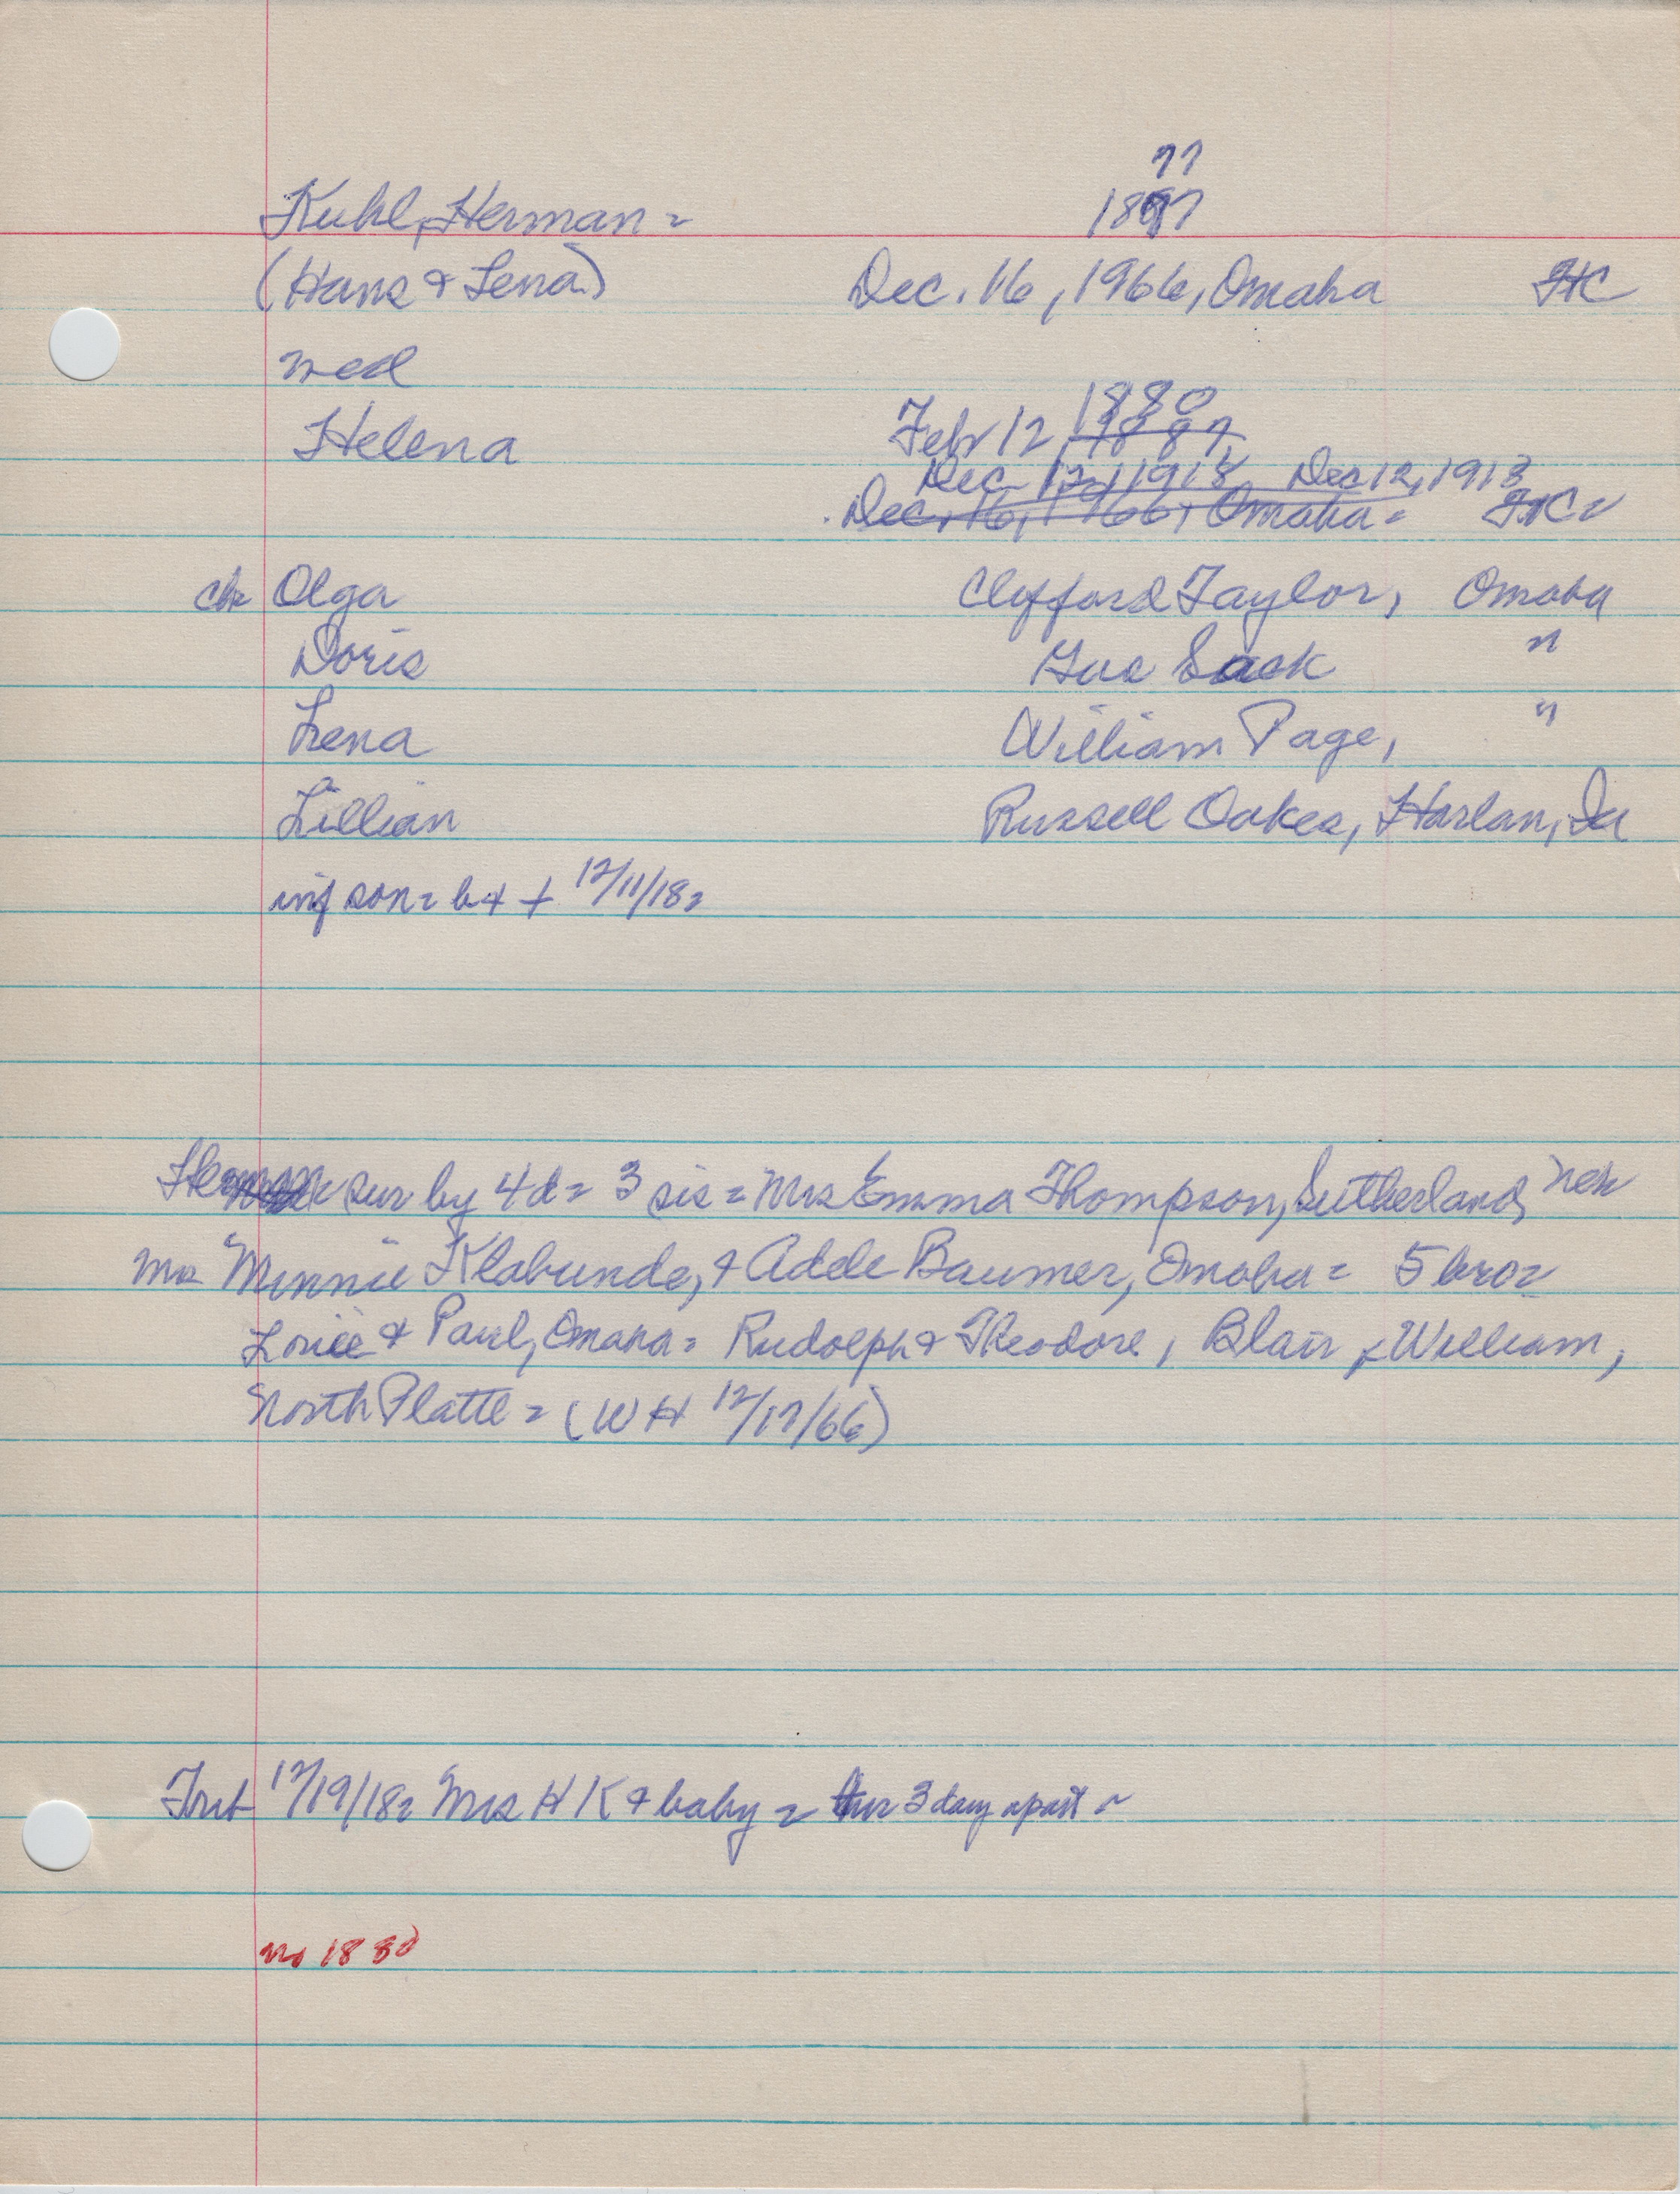 77
Kuhl, Herman = 1887
(Hans & Lena) Dec. 16, 1966, Omaha FHC
med
1880
Helena Febr 12, 1887
Dec 12, 1918 Dec 12, 1918
Dec. 16, 1966, Omaha = FHC =
ch= Olga Clifford Taylor, Omaha
Doris Gus Sack "
Lena William Page, "
Lillian Russell Oakes, Harlan, Ia
inf son = b + + 12/11/18 =
Herman sur by 4 d = 3 sis = Mrs Emma Thompson, Sutherland, Neb
Mrs Minnie Klabunde, + Adele Baumer, Omaha = 5 bro =
Louie + Paul, Omaha = Rudolph + Theodore, Blair, + William,
North Platte = (WH 12/17/66)
12/19/18 = Mrs H K + baby = 3 days apart =
no 1880